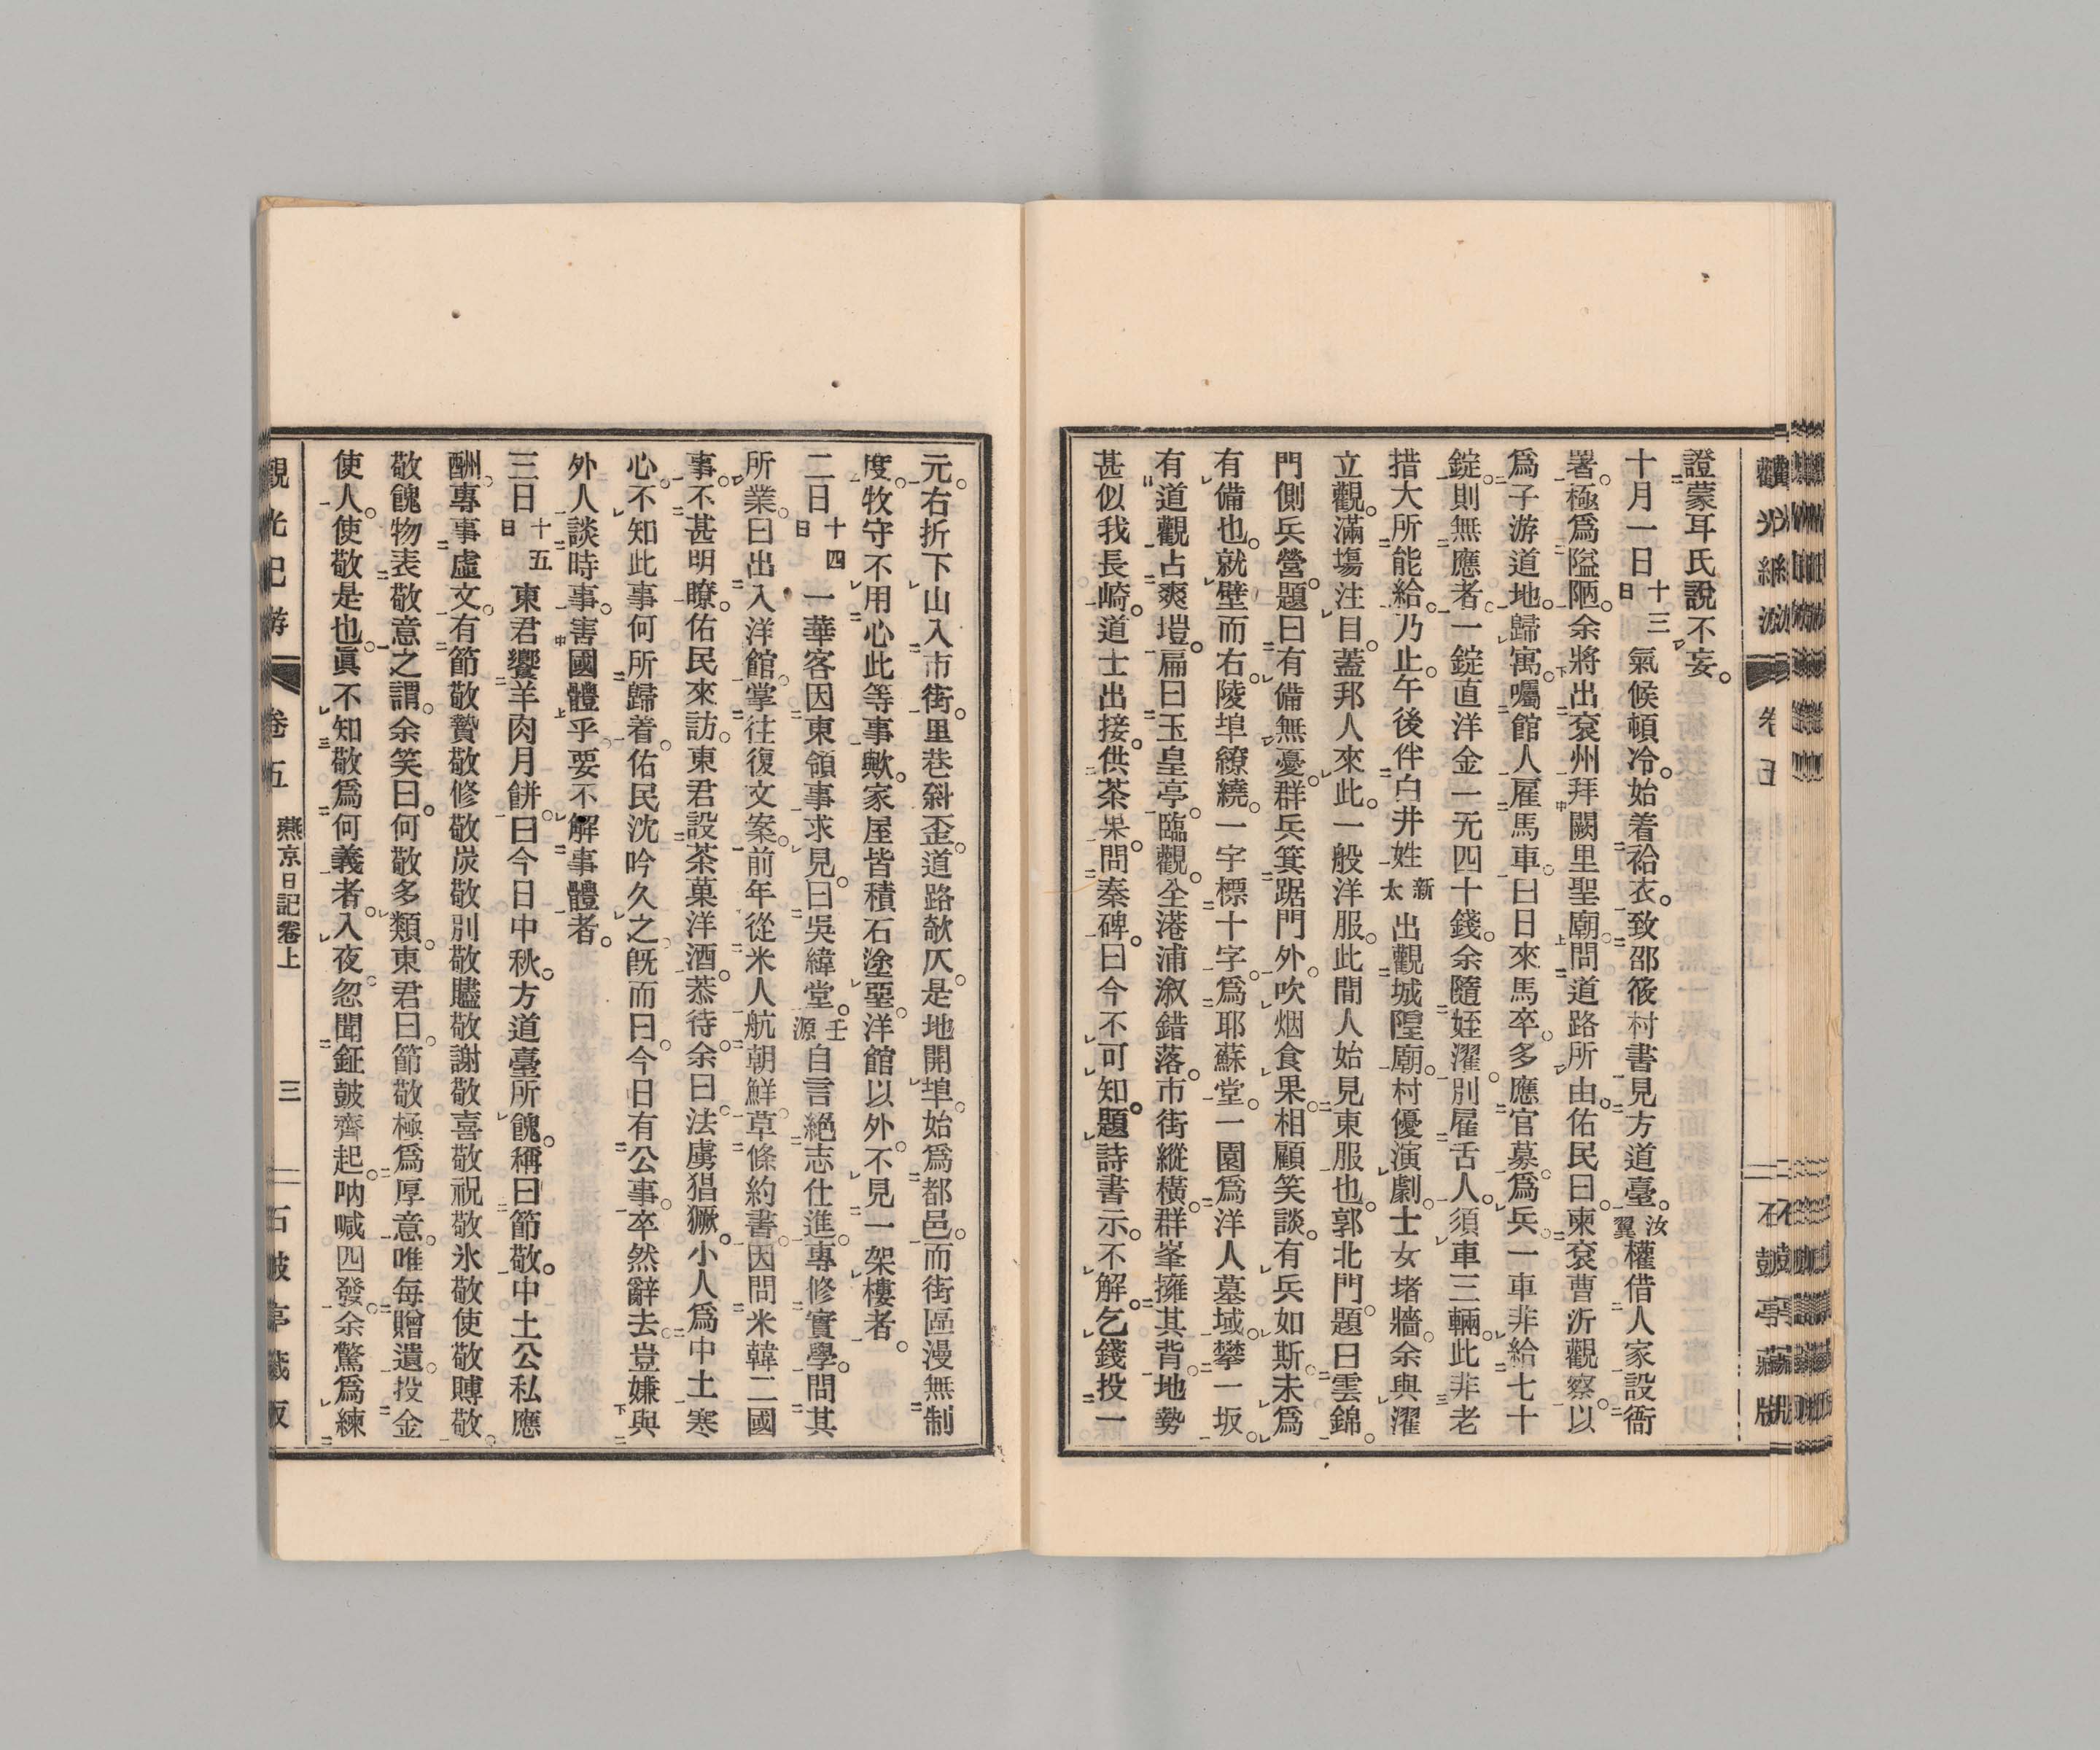 證蒙耳氏說不妄。
十月一日十三日氣候頓冷。始着袷衣。致邵筱村書。見方道臺。汝翼權借人家設衙
署。極爲隘陋。余將出兗州拜闕里聖廟。問道路所由。佑民曰。東兗曹沂觀察。以
爲子游道地。歸寓。囑館人雇馬車。曰日來馬卒多應官募。爲兵一車非給七十
錠。則無應者。一錠直洋金一元四十錢。余隨姪濯。別雇舌人。須車三輛。此非老
措大所能給。乃止。午後伴白井姓新太出觀城隍廟。村優演劇。士女堵牆。余與濯
立觀。滿塲注目。蓋邦人來此。一般洋服。此間人始見東服也。郭北門。題曰雲錦。
門側兵營。題曰有備無憂。群兵箕踞門外。吹烟食果。相顧笑談。有兵如斯。未爲
有備也。就壁而右。陵埠繚繞。一宇標十字。爲耶蘇堂。一園爲洋人墓域。攀一坂。
有道觀占爽塏。扁曰玉皇亭。臨觀。全港浦漵錯落。市街縱橫。群峯擁其背。地勢
甚似我長崎。道士出接。供茶果。問秦碑。曰今不可知。題詩書示。不解。乞錢投一
元。右折下山入市街。里巷斜歪。道路欹仄。是地開埠。始爲都邑。而街區漫無制
度。牧守不用心此等事歟。家屋皆積石塗堊。洋館以外。不見一架樓者。
二日十四日一華客因東領事求見。曰吳緯堂。壬源自言絕志仕進。專修實學。問其
所業。曰出入洋館。掌往復文案。前年從米人航朝鮮。草條約書。因問米韓二國
事。不甚明瞭。佑民來訪。東君設茶菓洋酒。恭待。余曰。法虜猖獗。小人爲中土寒
心。不知此事何所歸着。佑民沈吟久之。旣而曰。今日有公事。卒然辭去。豈嫌與
外人談時事。害國體乎。要不解事體者。
三日十五日東君饗羊肉月餅。曰今日中秋。方道臺所餽。稱曰節敬。中土公私應
酬。專事虛文。有節敬贄敬修敬炭敬別敬贐敬謝敬喜敬祝敬氷敬使敬賻敬。
敬餽物表敬意之謂。余笑曰。何敬多類。東君曰。節敬極爲厚意。唯每贈遺。投金
使人。使敬是也。眞不知敬爲何義者。入夜。忽聞鉦鼓齊起。吶喊四發。余驚爲練
觀光紀游 卷五 燕京日記卷上 三 石鼓亭藏版